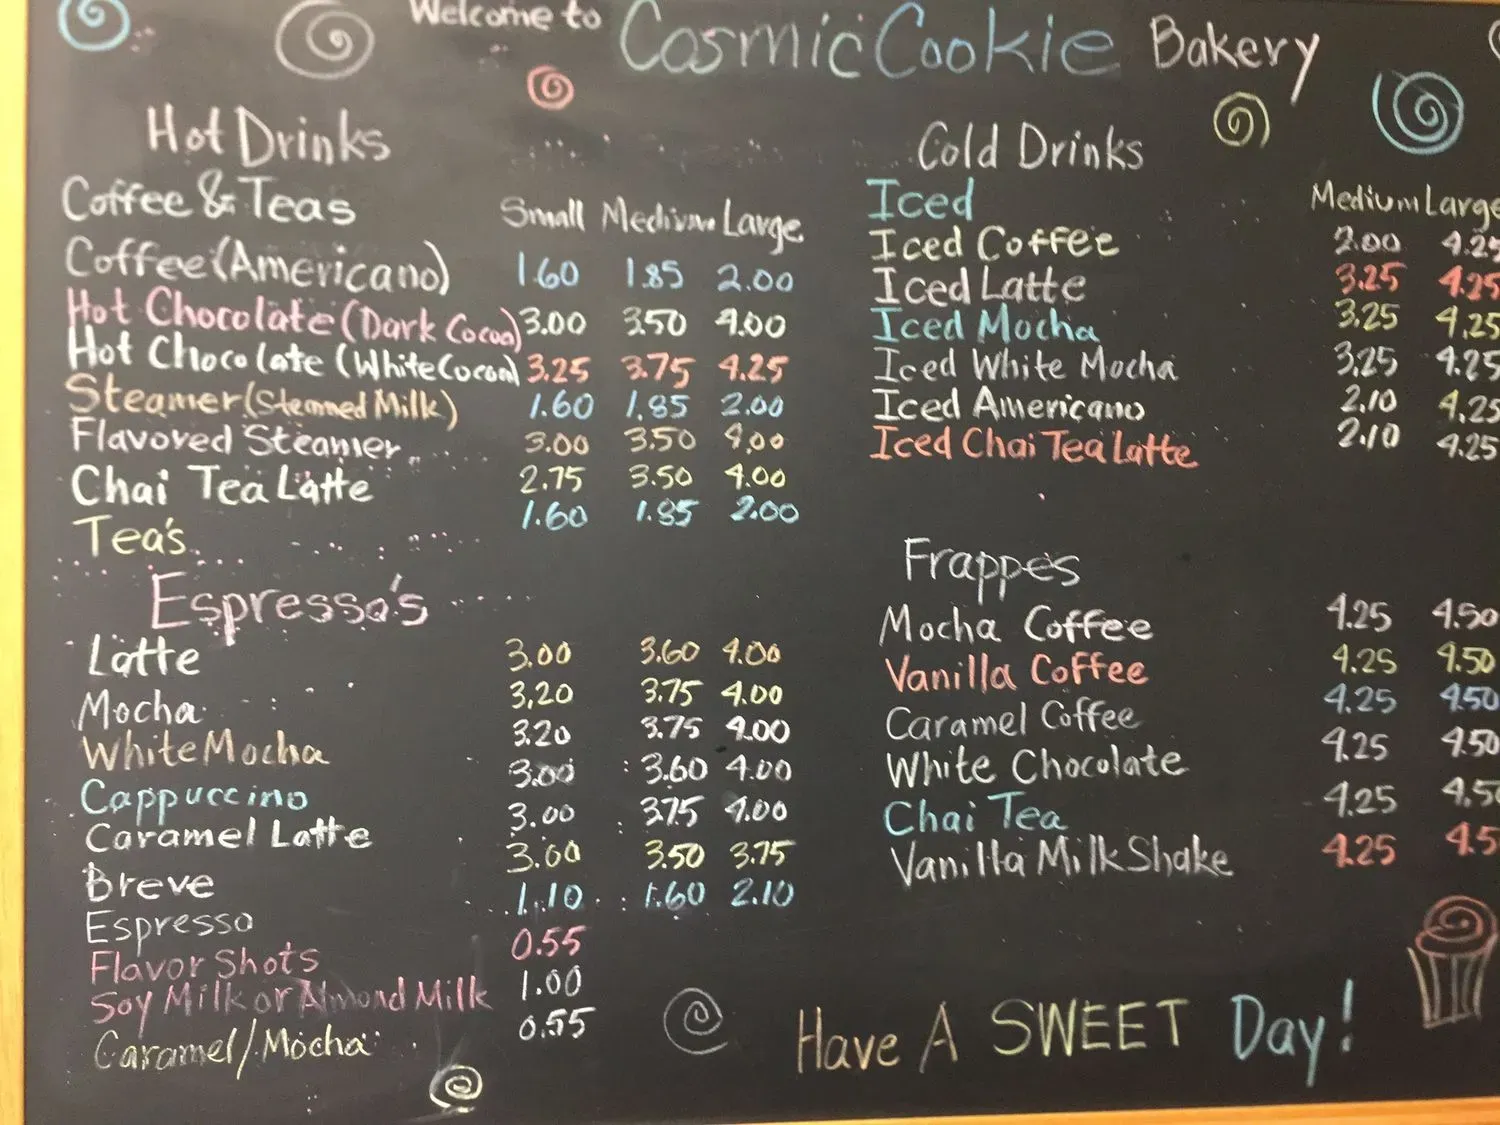 Welcome to Cosmic Cookie Bakery
Hot Drinks
Coffee & Teas Small Medium Large
Coffee (Americano) 1.60 1.85 2.00
Hot Chocolate (Dark Cocoa) 3.00 3.50 4.00
Hot Chocolate (White Cocoa) 3.25 3.75 4.25
Steamer (Stemned Milk) 1.60 1.85 2.00
Flavored Steamer 3.00 3.50 4.00
Chai Tea Latte 2.75 3.50 4.00
Tea's 1.60 1.85 2.00
Espresso's
Latte 3.00 3.60 4.00
Mocha 3.20 3.75 4.00
White Mocha 3.20 3.75 4.00
Cappuccino 3.00 3.60 4.00
Caramel Latte 3.00 3.75 4.00
Breve 3.60 3.50 3.75
Espresso 1.10 1.60 2.10
Flavor Shots 0.55
Soy Milk or Almond Milk 1.00
Caramel/Mocha 0.55
Cold Drinks
Iced Medium Large
Iced Coffee 2.00 4.25
Iced Latte 3.25 4.25
Iced Mocha 3.25 4.25
Iced White Mocha 3.25 4.25
Iced Americano 2.10 4.25
Iced Chai Tea Latte 2.10 4.25
Frappes
Mocha Coffee 4.25 4.50
Vanilla Coffee 4.25 4.50
Caramel Coffee 4.25 4.50
White Chocolate 4.25 4.50
Chai Tea 4.25 4.50
Vanilla Milk Shake 4.25 4.5
Have A SWEET Day!